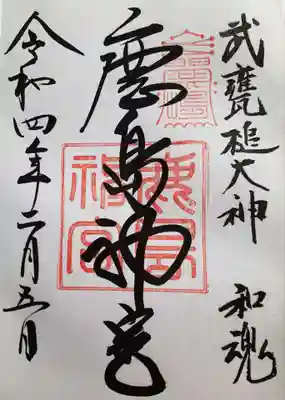 武甕槌大神 和魂
鹿島神宮
鹿島神宮
令和四年二月五日